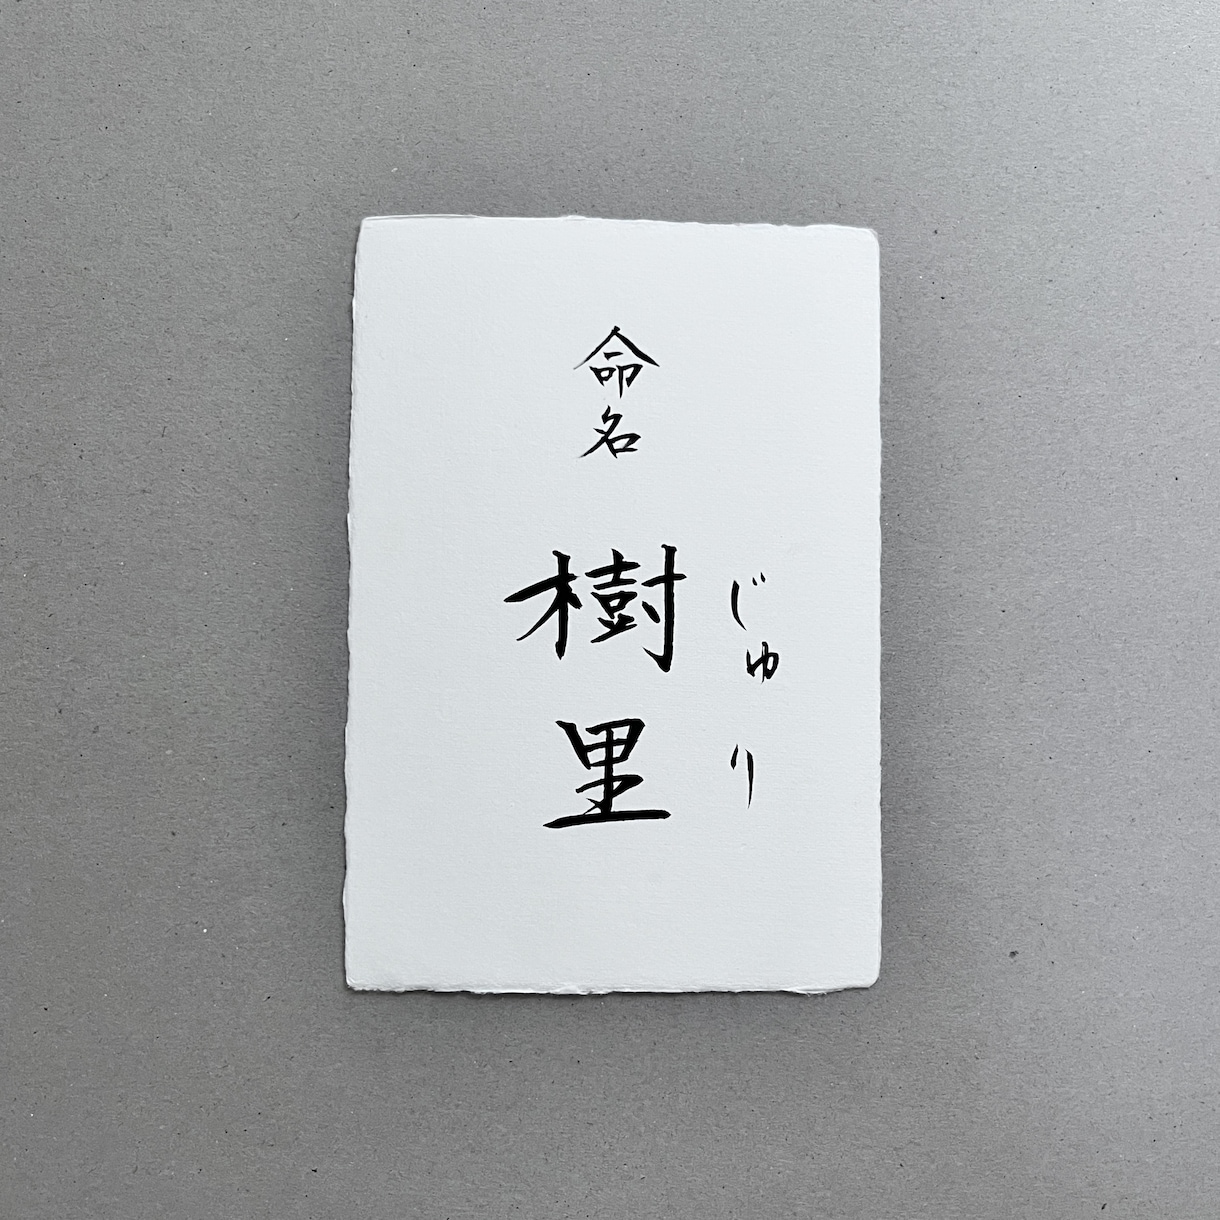 命名
樹里
じゅり